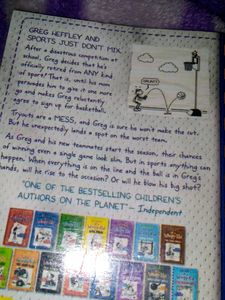 GREG HEFFLEY AND
SPORTS JUST DON'T MIX.
After a disastrous competition at
school, Greg decides that he's
officially retired from ANY kind
of sport! That is, until his mom
persuades him to give it one more
go and makes Greg reluctantly
agree to sign up for basketball.
Tryouts are a MESS, and Greg is sure he won't make the cut.
But he unexpectedly lands a spot on the worst team.
As Greg and his new teammates start the season, their chances
of winning even a single game look slim. But in sports anything can
happen. When everything is on the line and the ball is in Greg's
hands, will he rise to the occasion? Or will he blow his big shot?
"ONE OF THE BESTSELLING CHILDREN'S
AUTHORS ON THE PLANET" – Independent